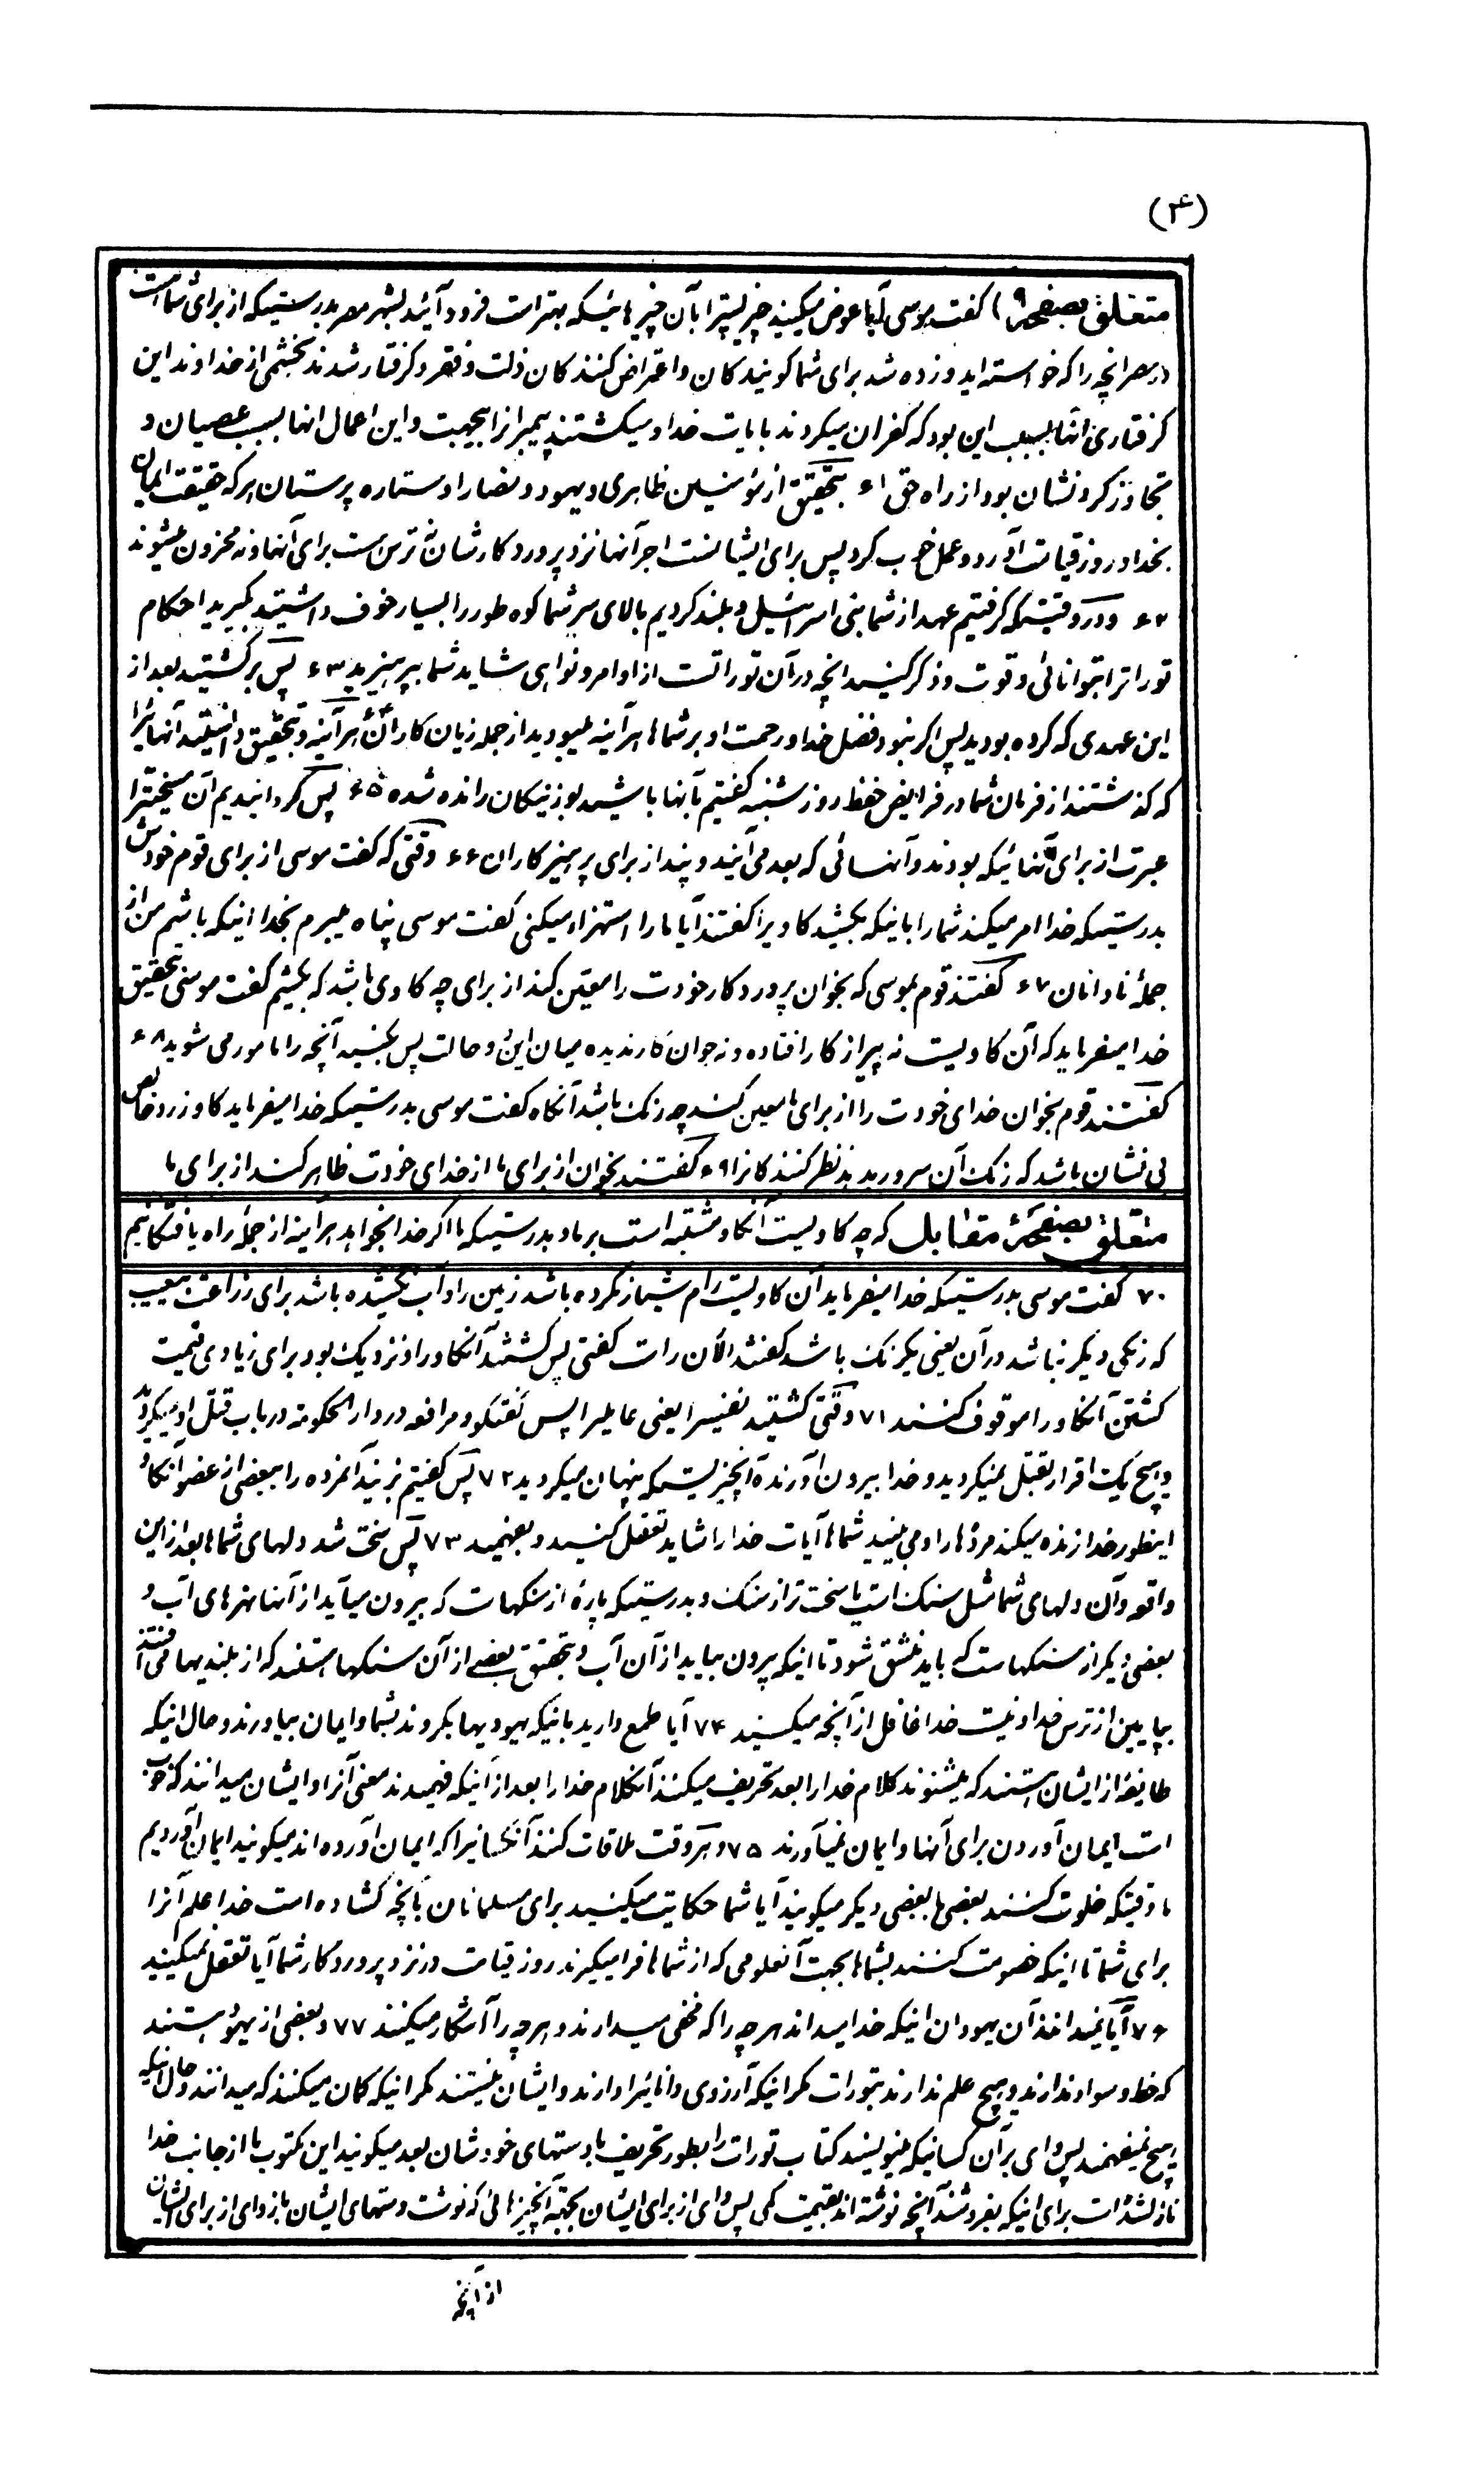 (۴)
متعلق بصفحهٔ ۹) گفت موسی آیا عوض میکنید چیز پستر را بآن چیز هائیکه بهتر است فرود آئید بشهر مصر بدرستیکه از برای شما است
در مصر انچه را که خواسته اید و زده شد برای شما گویندکان و اعتراض کنندکان ذلت و فقر و گرفتار شدند بخشمی از خداوند این
گرفتاری انها بسبب این بود که کفران میکردند بایات خدا و میکشتند پیمبرانرا بیجهت و این اعمال انها بسبب عصیان و
تجاوز کردنشان بود از راه حق ۶۱ بتحقیق از مؤمنین ظاهری و یهود و نصارا و ستاره پرستان هر که حقیقت ایمان
بخدا و روز قیامت آورد و عمل خوب کرد پس برای ایشانست اجر آنها نزد پروردکارشان نه ترس است برای آنها و نه محزون میشوند
۶۲ و در وقتیکه گرفتیم عهد از شما بنی اسرائیل و بلند کردیم بالای سر شما کوه طور را بسیار خوف داشتید بگیرید احکام
توراترا بتوانائی و قوت و ذکر کنید انچه در آن توراتست از اوامر و نواهی شاید شما بپرهیزید ۶۳ پس برگشتید بعد از
این عهدی که کرده بودید پس اگر نبود فضل خدا و رحمت او بر شماها هرآینه میبودید از جمله زیان کاران ۶۴ هرآینه و بتحقیق دانستید آنهائیرا
که گذشتند از فرمان شما در فرایض حفظ روز شنبه گفتیم بآنها باشید بوزینکان رانده شده ۶۵ پس گردانیدیم آن مسخیترا
عبرت از برای آنهائیکه بودند و آنهائی که بعد می آیند و پند از برای پرهیزکاران ۶۶ وقتی که گفت موسی از برای قوم خودش
بدرستیکه خدا امر میکند شما را باینکه بکشید کاویرا گفتند آیا ما را استهزاء میکنی گفت موسی پناه میبرم بخدا اینکه باشم من از
جملهٔ نادانان ۶۷ گفتند قوم بموسی که بخوان پروردکار خودت را معین کند از برای چه کاوی باشد که بکشیم گفت موسی بتحقیق
خدا میفرماید که آن کاویست نه پیر از کار افتاده و نه جوان کار ندیده میان این دو حالت پس بکنید آنچه را مامور می شوید ۶۸
گفتند قوم بخوان خدای خودت را از برای ما معین کند چه رنک باشد آنکاه گفت موسی بدرستیکه خدا میفرماید کاو زرد خالص
بی نشان باشد که رنک آن سرور بدهد نظر کنندکانرا ۶۹ گفتند بخوان از برای ما از خدای خودت ظاهر کند از برای ما
متعلق بصفحهٔ مقابل که چه کاویست آنکاو مشتبه است بر ما و بدرستیکه ما اکر خدا بخواهد هراینه از جمله راه یافتکانیم
۷۰ گفت موسی بدرستیکه خدا میفرماید آن کاویست رام شیار نکرده باشد زمین را و آب نکشیده باشد برای زراعت بیعیب
که رنکی دیکر نباشد در آن یعنی یکرنک باشد گفتند الآن راست کفتی پس کشتند آنکاو را و نزدیک بود برای زیادی قیمت
کشتن آنکاو را موقوف کنند ۷۱ وقتی کشتید نفسیرا یعنی عامیلرا پس گفتکو و مرافعه در دار الحکومه در باب قتل او میکردید
و هیچ یک اقرار بقتل نمیکردید و خدا بیرون آورندهٔ آنچیزیست که پنهان میکردید ۷۲ پس گفتیم بزنید آنمرده را ببعضی از عضو آنکاو
اینطور خدا زنده میکند مردها را و می بینید شماها آیات خدا را شاید تعقل کنید و بفهمید ۷۳ پس سخت شد دلهای شماها بعد از این
واقعه و آن دلهای شما مثل سنک است یا سخت تر از سنک و بدرستیکه پارهٔ از سنکهاست که بیرون میآید از آنها نهرهای آب و
بعضی دیکر از سنکهاست که باید منشق شود تا اینکه بیرون بیاید از آن آب و بتحقیق بعضی از آن سنکها هستند که از بلندیها می افتند
بپایین از ترس خدا و نیست خدا غافل از آنچه میکنید ۷۴ آیا طمع دارید باینکه یهودیها بگروند بشما و ایمان بیاورند و حال انیکه
طایفهٔ از ایشان هستند که میشنوند کلام خدا را بعد تحریف میکنند آنکلام خدا را بعد از اینکه فهمیدند معنی آنرا و ایشان میدانند که خوب
است ایمان آوردن برای آنها و ایمان نمیآورند ۷۵ و هر وقت ملاقات کنند آنکسانیرا که ایمان آورده اند میکویند ایمان آوردیم
ما وقتیکه خلوت کنند بعضی ها ببعضی دیکر میکویند آیا شما حکایت میکنید برای مسلمانان بآنچه گشاده است خدا علم آنرا
برای شما تا اینکه خصومت کنند بشماها بجهت آنعلومی که از شماها فرا میکیرند روز قیامت در نزد پروردکار شما آیا تعقل نمیکنید
۷۶ آیا نمیدانند آن یهودان اینکه خدا میداند هر چه را که مخفی میدارند و هر چه را آشکار میکنند ۷۷ و بعضی از یهود هستند
که خط و سواد ندارند و هیچ علم ندارند بتورات مکر انیکه آرزوی دانائیرا دارند و ایشان نیستند مکر انیکه کمان میکنند که میدانند و حال انیکه
هیچ نمیفهمند پس وای بر آن کسانیکه مینویسند کتاب تورات را بطور تحریف با دستهای خودشان بعد میکویند این مکتوب ما از جانب خدا
نازلشده است برای اینکه بفروشند آنچه نوشته اند بقیمت کمی پس وای از برای ایشان بجهة آنچیزهائی که نوشت دستهای ایشان باز وای از برای ایشان
از آنچه